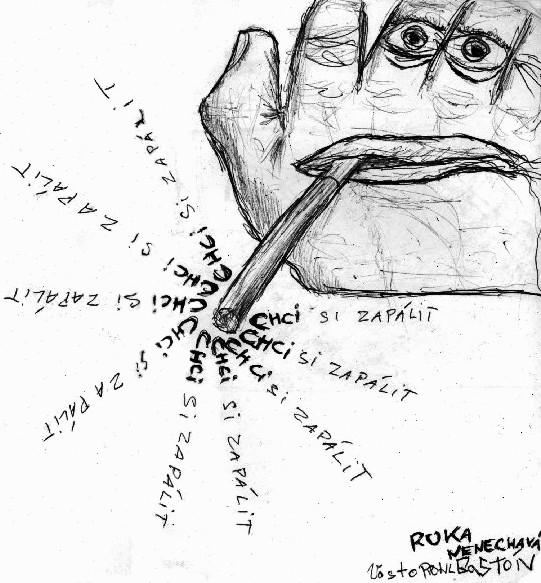 CHCI SI ZAPÁLIT
CHCI SI ZAPÁLIT
CHCI SI ZAPÁLIT
CHCI SI ZAPÁLIT
CHCI SI ZAPÁLIT
CHCI SI ZAPÁLIT
CHCI SI ZAPÁLIT
CHCI SI ZAPÁLIT
CHCI SI ZAPÁLIT
RUKA
NENECHAVÁ